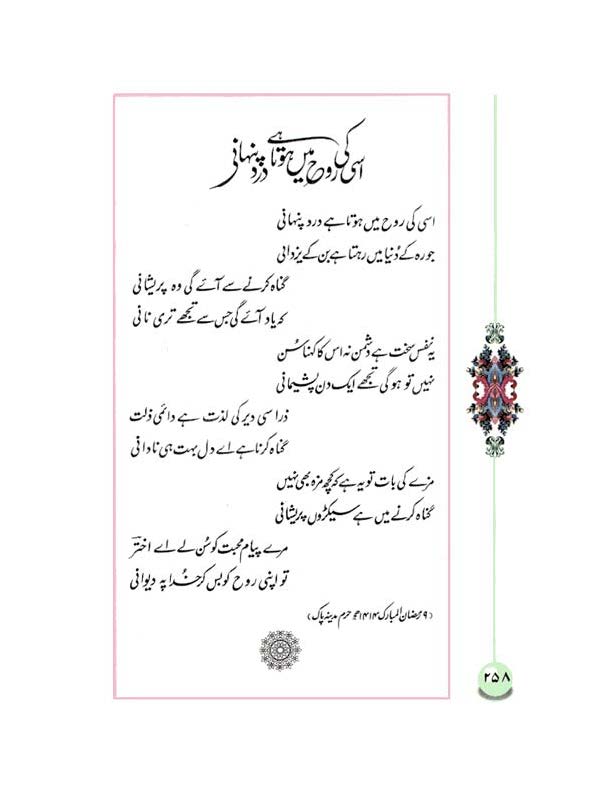 اسی کی روح میں ہوتا ہے درد پنہانی
اسی کی روح میں ہوتا ہے درد پنہانی
جو رہ کے دُنیا میں رہتا ہے بن کے یزدانی
گناہ کرنے سے آئے گی وہ پریشانی
کہ یاد آئے گی جس سے تجھے تری نانی
یہ نفس سخت ہے دشمن نہ اس کا کہنا سُن
نہیں تو ہوگی تجھے ایک دن پشیمانی
ذرا سی دیر کی لذت ہے دائمی ذلت
گناہ کرنا ہے اے دل بہت ہی نادانی
مزے کی بات تو یہ ہے کہ کچھ مزہ بھی نہیں
گناہ کرنے میں ہے سیکڑوں پریشانی
مرے پیام محبت کو سُن لے اے اخترؔ
تو اپنی روح کو بس کر خُدا پہ دیوانی
(۹ رمضان المبارک ۱۴۱۴ھ حرم مدینہ پاک)
۲۵۸